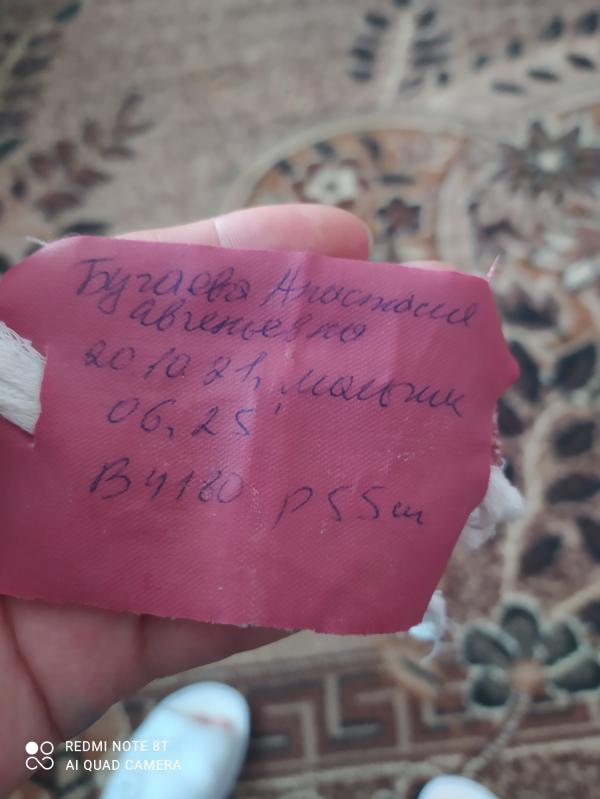 Бугаева Анастасия
Авгеньевна
20 10 21, мальчик
06, 25'
В 4180 р 55 см
REDMI NOTE 8T
AI QUAD CAMERA